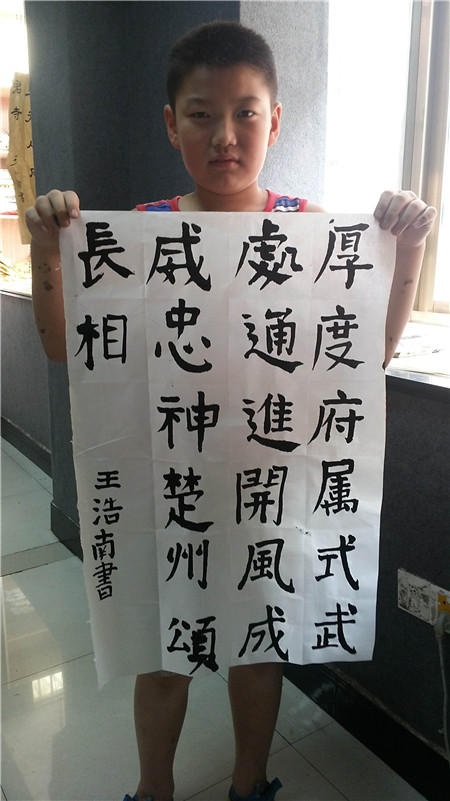 厚度府属式武
處通進開風成
威忠神楚州頌
長相
王浩南書